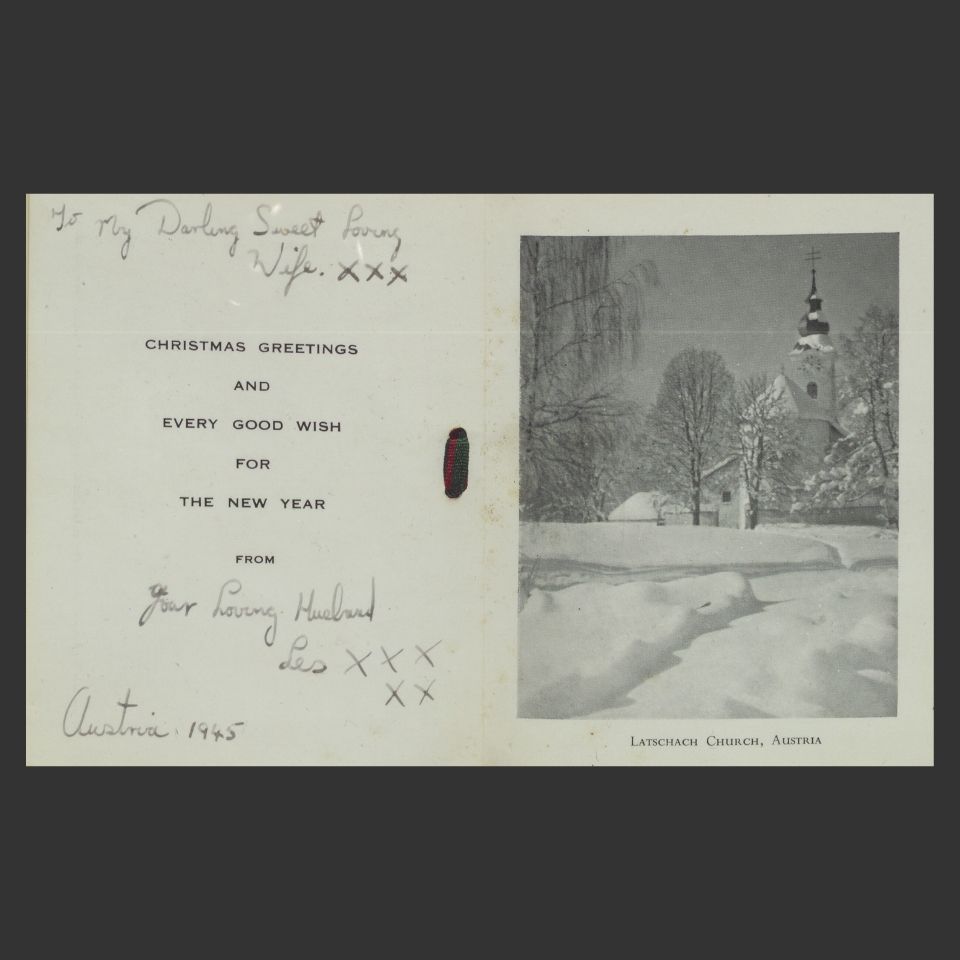 To My Darling Sweet Loving
Wife. XXX
CHRISTMAS GREETINGS
AND
EVERY GOOD WISH
FOR
THE NEW YEAR
FROM
Your Loving Husband
Les X X X
X X
Austria 1945
LATSCHACH CHURCH, AUSTRIA